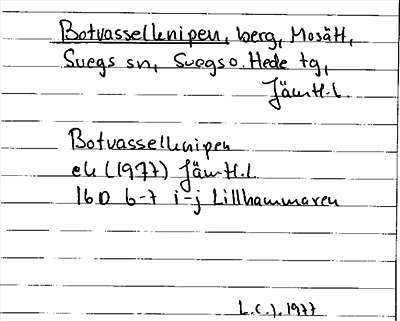 Botvassellknipen, berg, Mosätt,
Svegs sn, Svegs o. Hede tg,
Jämtl.l.
Botvassellknipen
ek (1977) Jämtl.l.
16D 6-7 i-j Lillhammaren
L.C.J. 1977